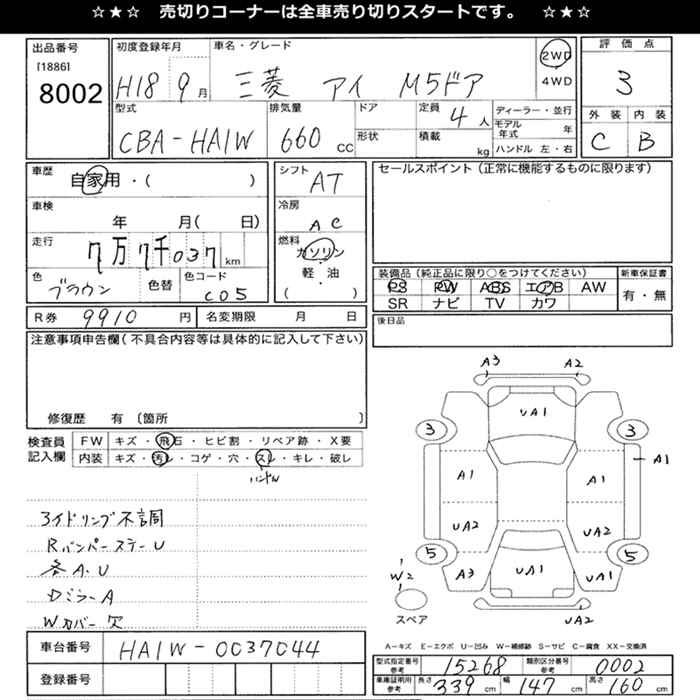 ☆★☆ 売切りコーナーは全車売り切りスタートです。 ☆★☆
出品番号 初度登録年月 車名・グレード 評価点
[1886] 8002 H18 9月 三菱 アイ M5ドア 2WD 4WD 3
型式 排気量 ドア 定員 4人 ディーラー・並行 外装 内装
CBA-HA1W 660CC 形状 積載 kg モデル年式 年 C B
ハンドル 左・右
車歴 自家用・( ) シフト AT セールスポイント(正常に機能するものに限ります)
車検 年 月( 日) 冷房 AC
走行 7万7千037km 燃料 ガソリン・軽・油 ( )
色 ブラウン 色替 色コード C05
装備品(純正品に限り○をつけてください) 新車保証書
PS PW ABS エアB AW 有・無
SR ナビ TV カワ
R券 9910円 名変期限 月 日 後日品
注意事項申告欄(不具合内容等は具体的に記入して下さい)
修復歴 有 〔箇所 〕
検査員記入欄 FW キズ・飛石・ヒビ割・リペア跡・X要
内装 キズ・汚れ・コゲ・穴・スレ・キレ・破レ
ハンドル
アイドリング不調
RバンパーステーU
各A.U
DミラーA
Wカバー欠
A3 A2
UA1
3 3
A1 A1 A1
UA2 UA2
5 5
W2 A3 UA1 UA1
スペア UA2
車台番号 HA1W-0037044
登録番号
A-キズ E-エクボ U-凹み W-補修跡 S-サビ C-腐食 XX-交換済
型式指定番号 参考 15268 類別区分番号 参考 0002
車庫証明用 参考 長さ 339cm 幅 147cm 高さ 160cm